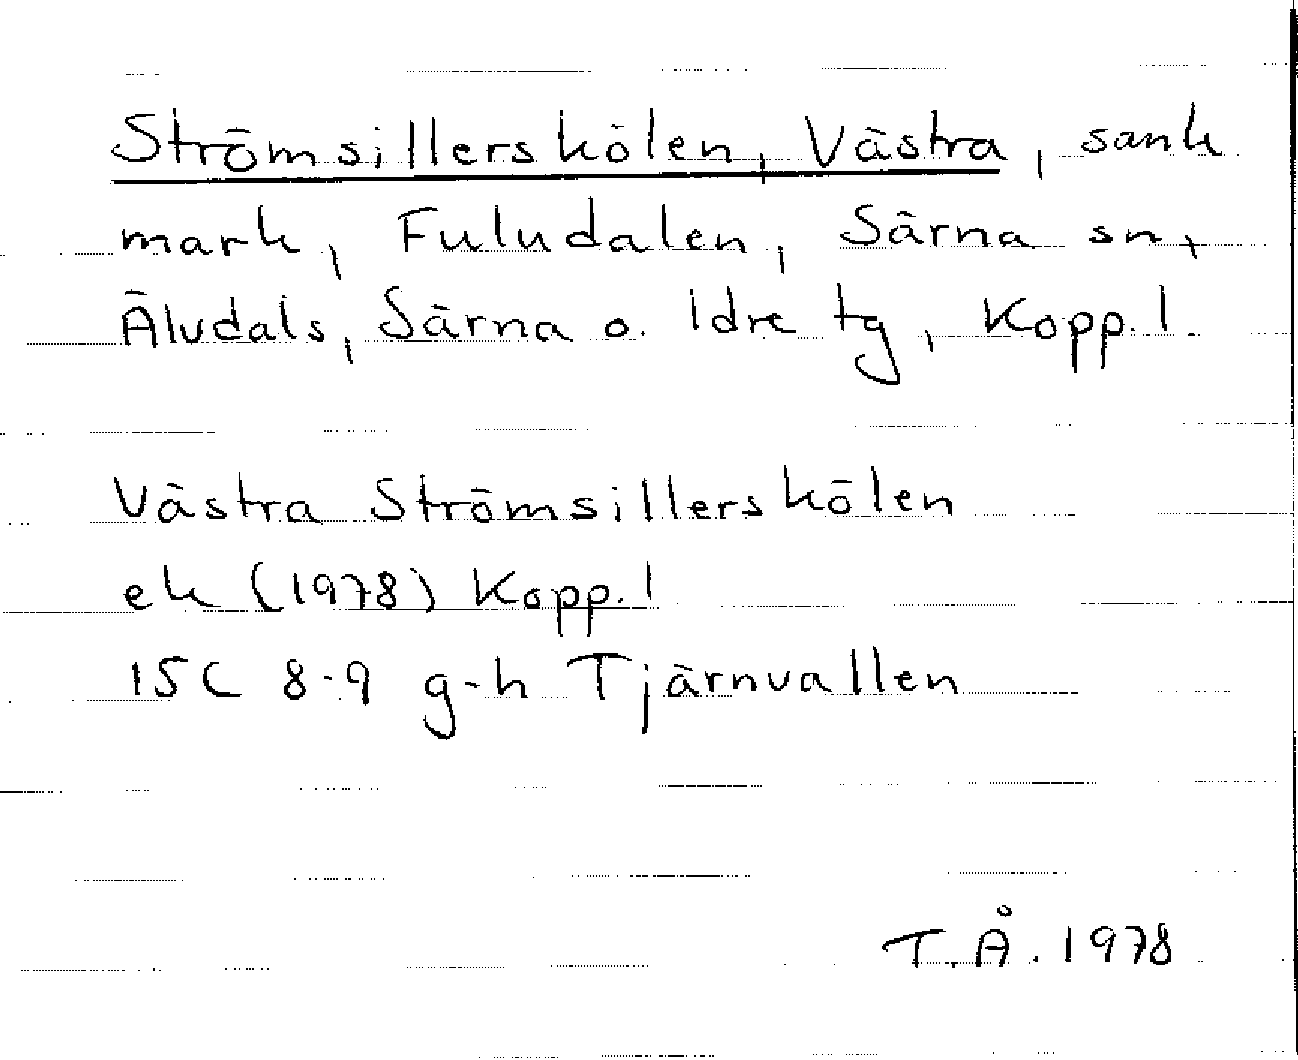 Strömsillerskölen, Västra, sank
mark, Fuludalen, Särna sn,
Älvdals, Särna o. Idre tg, Kopp. l.
Västra Strömsillerskölen
ek (1978) Kopp. l
15C 8-9 g-h Tjärnvallen
T.Å. 1978